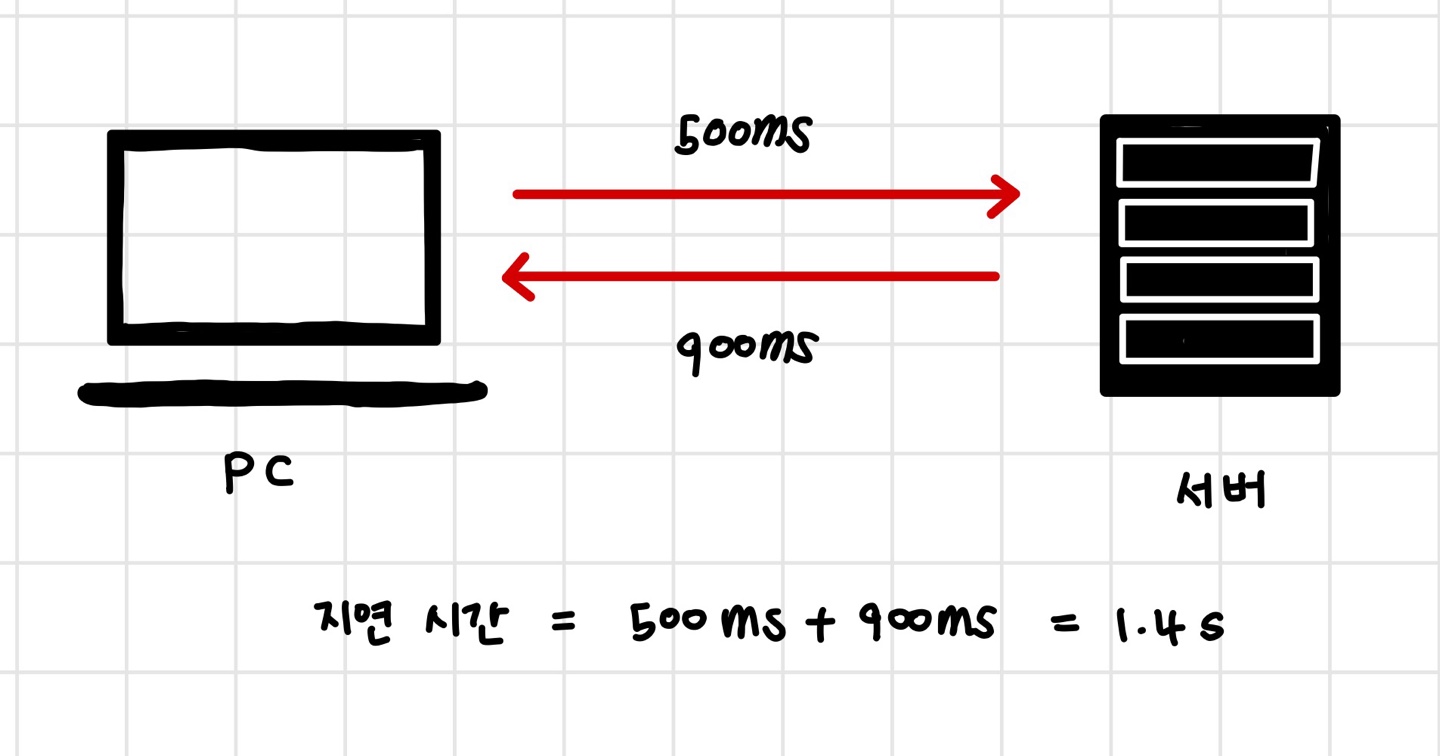 500ms
900ms
PC
서버
지연 시간 = 500ms + 900ms = 1.4s